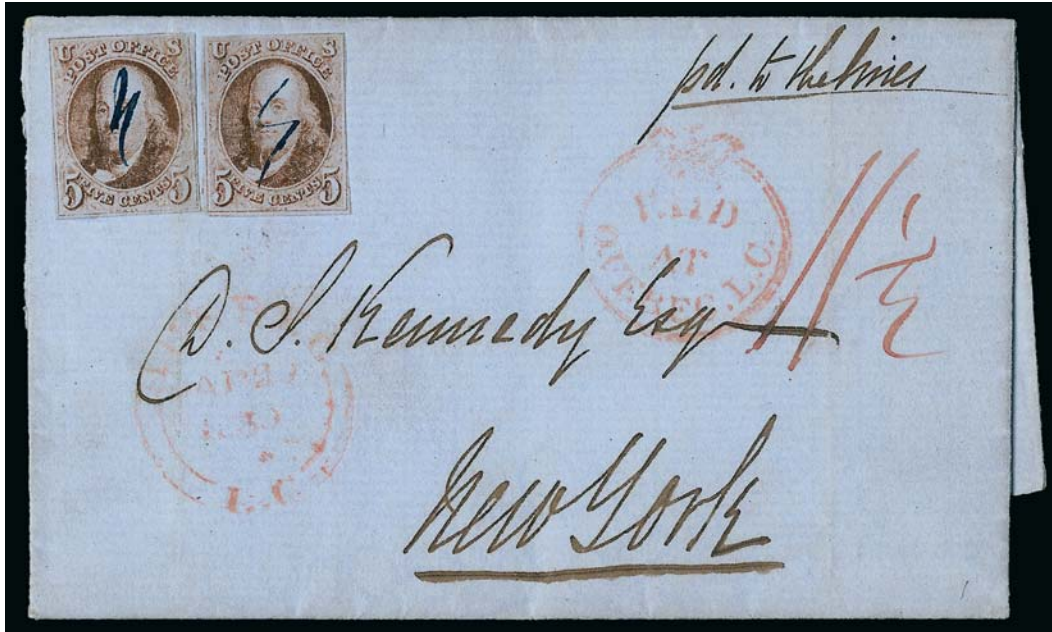 U S
POST OFFICE
FIVE CENTS
5 5
U S
POST OFFICE
FIVE CENTS
5 5
pd. to the lines
PAID
AT
QUEBEC. L.C.
11½
D. S. Kennedy Esq
New York
L.C.